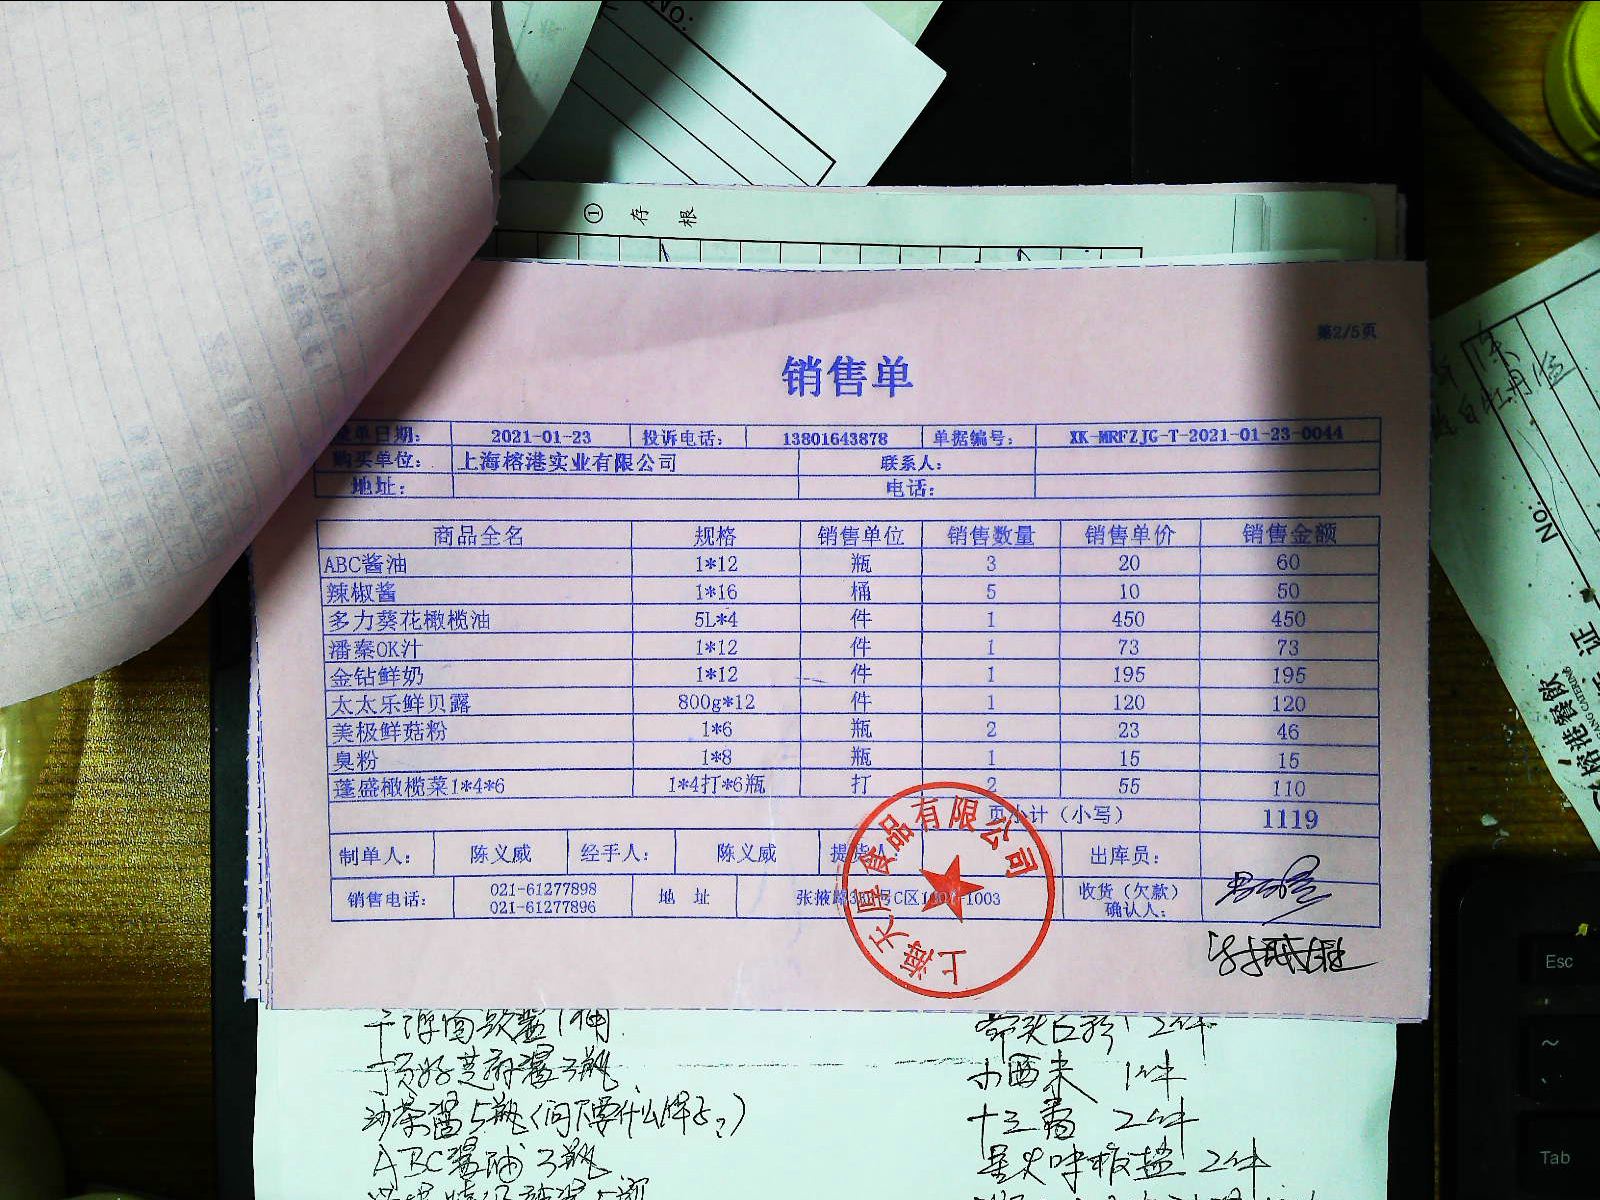 No:
① 存 根
第2/5页
销售单
录单日期： 2021-01-23 投诉电话： 13801643878 单据编号： XK-MRFZJG-T-2021-01-23-0044
购买单位： 上海榕港实业有限公司 联系人：
地址： 电话：
商品全名 规格 销售单位 销售数量 销售单价 销售金额
ABC酱油 1*12 瓶 3 20 60
辣椒酱 1*16 桶 5 10 50
多力葵花橄榄油 5L*4 件 1 450 450
潘泰OK汁 1*12 件 1 73 73
金钻鲜奶 1*12 件 1 195 195
太太乐鲜贝露 800g*12 件 1 120 120
美极鲜菇粉 1*6 瓶 2 23 46
臭粉 1*8 瓶 1 15 15
蓬盛橄榄菜1*4*6 1*4打*6瓶 打 2 55 110
页小计（小写） 1119
制单人： 陈义威 经手人： 陈义威 提货人： 出库员：
销售电话： 021-61277898 021-61277896 地 址 张掖路 号C区 1003 收货（欠款）确认人：
上海天厚食品有限公司
丁页好芝麻酱3瓶
沙茶酱5瓶(问下要什么牌子?)
ABC酱油3瓶
2件
小西米 1件
十三香 2件
2件
No:
榕港餐饮
证
Esc
Tab